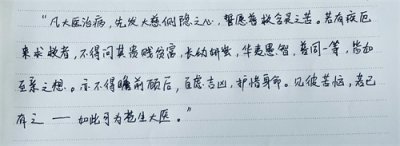 “凡大医治病，先发大慈恻隐之心，誓愿普救含灵之苦。若有疾厄
来求救者，不得问其贵贱贫富，长幼妍蚩，华夷愚智，普同一等，皆如
至亲之想。亦不得瞻前顾后，自虑吉凶，护惜身命。见彼苦恼，若己
有之——如此可为苍生大医。”